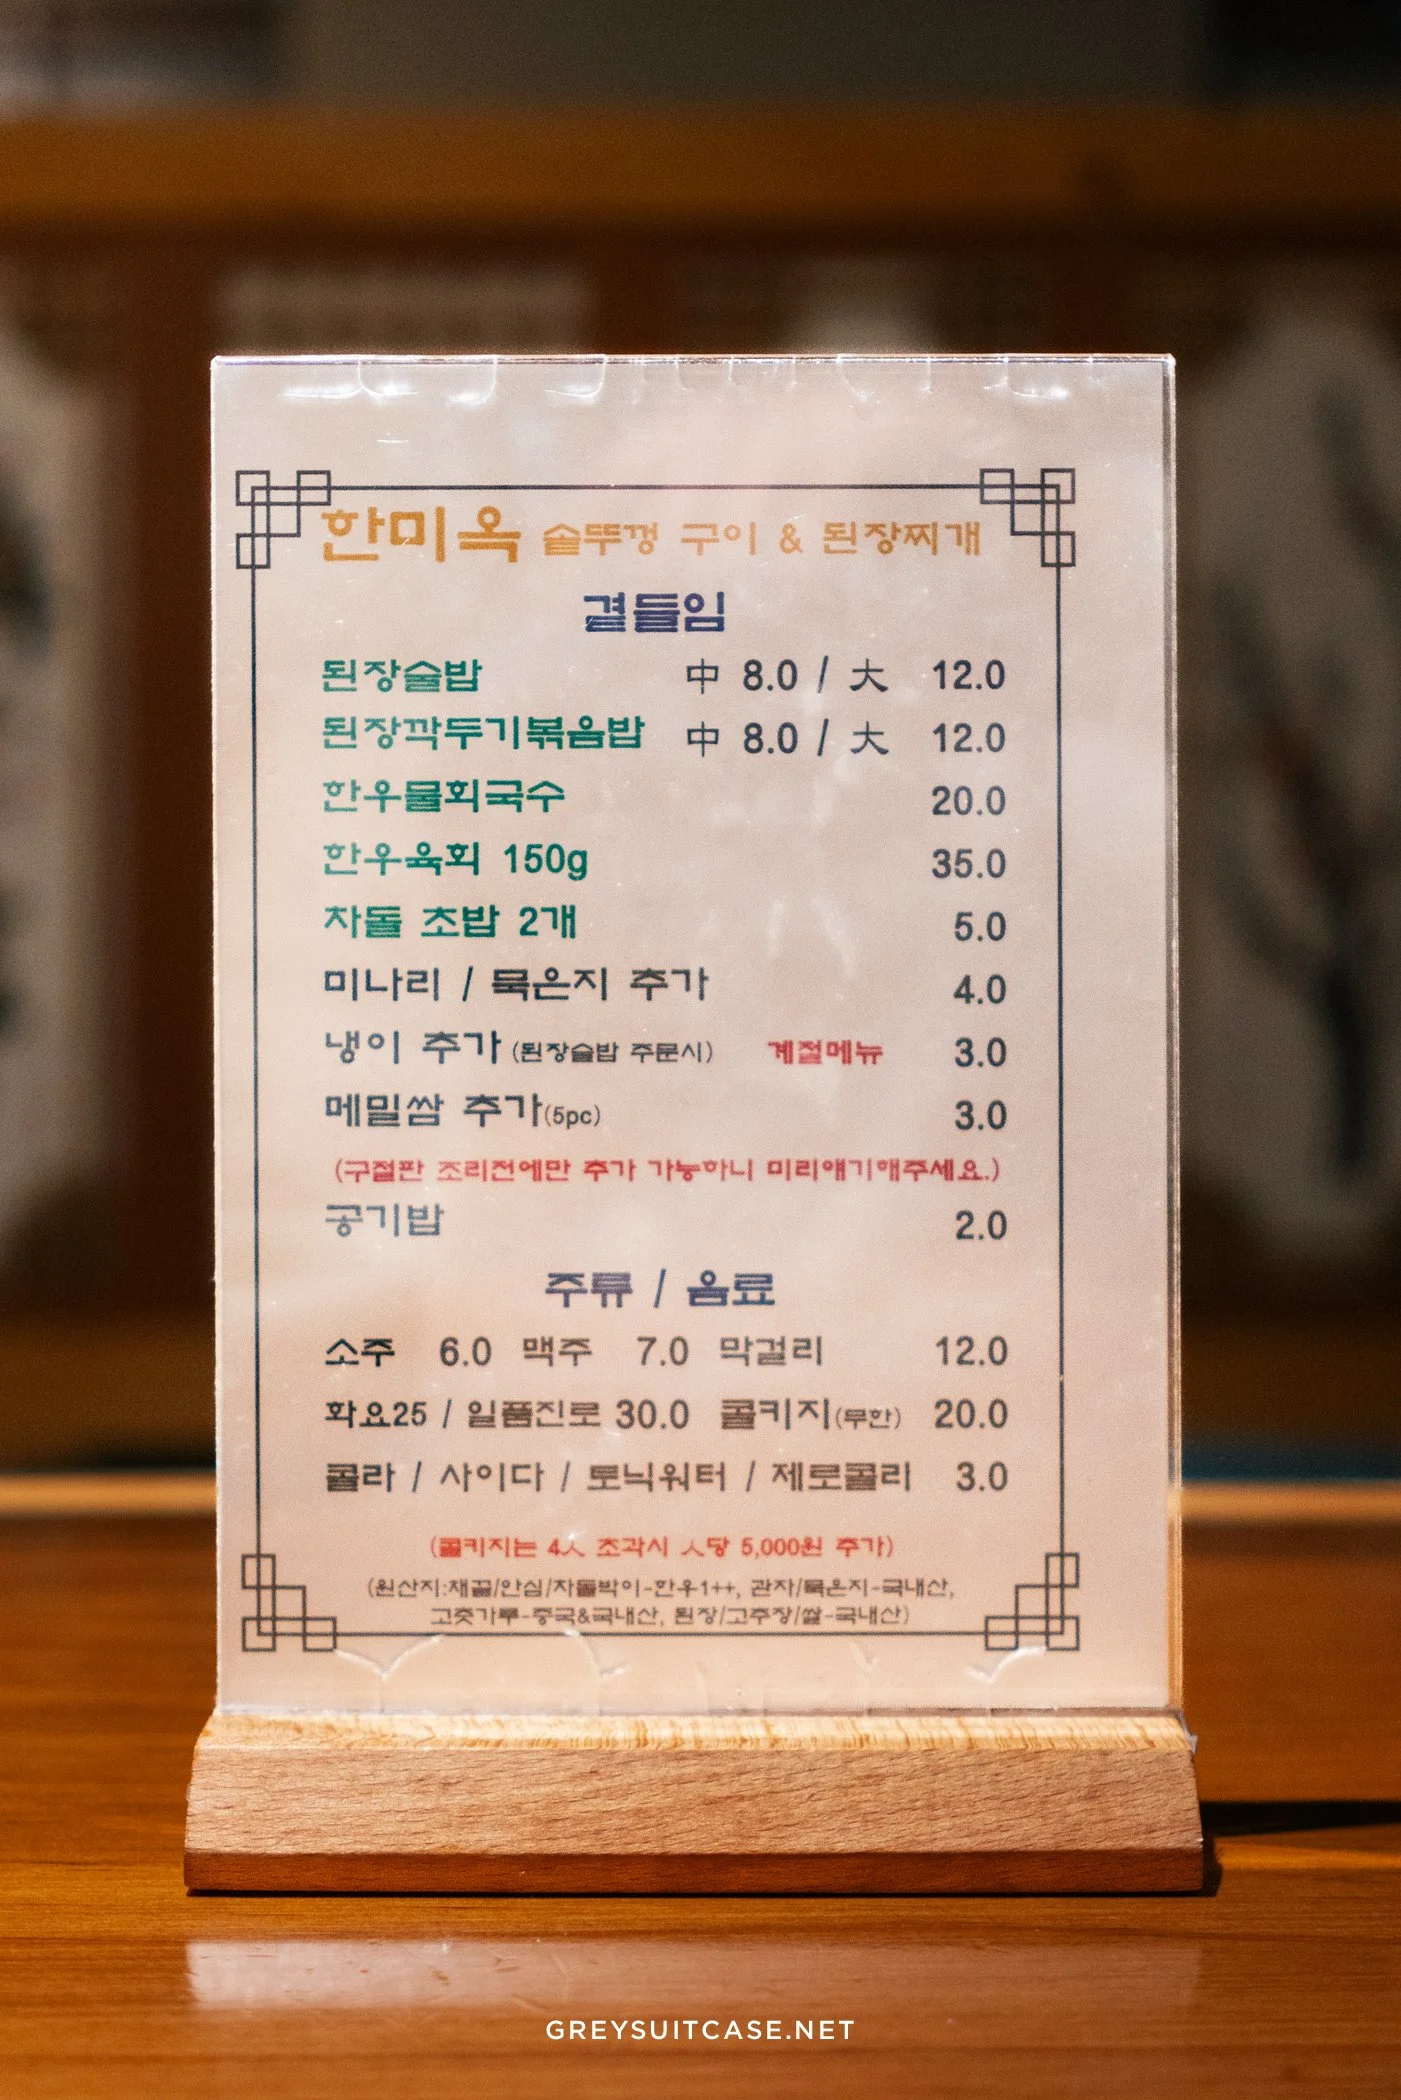 한미옥 솥뚜껑 구이 & 된장찌개
곁들임
된장술밥 中 8.0 / 大 12.0
된장깍두기볶음밥 中 8.0 / 大 12.0
한우물회국수 20.0
한우육회 150g 35.0
차돌 초밥 2개 5.0
미나리 / 묵은지 추가 4.0
냉이 추가 (된장술밥 주문시) 계절메뉴 3.0
메밀쌈 추가(5pc) 3.0
(구절판 조리전에만 추가 가능하니 미리얘기해주세요.)
공기밥 2.0
주류 / 음료
소주 6.0 맥주 7.0 막걸리 12.0
화요25 / 일품진로 30.0 콜키지(무한) 20.0
콜라 / 사이다 / 토닉워터 / 제로콜라 3.0
(콜키지는 4人 초과시 人당 5,000원 추가)
(원산지:채끝/안심/차돌박이-한우1++, 관자/묵은지-국내산,
고춧가루-중국&국내산, 된장/고추장/쌀-국내산)
GREYSUITCASE.NET